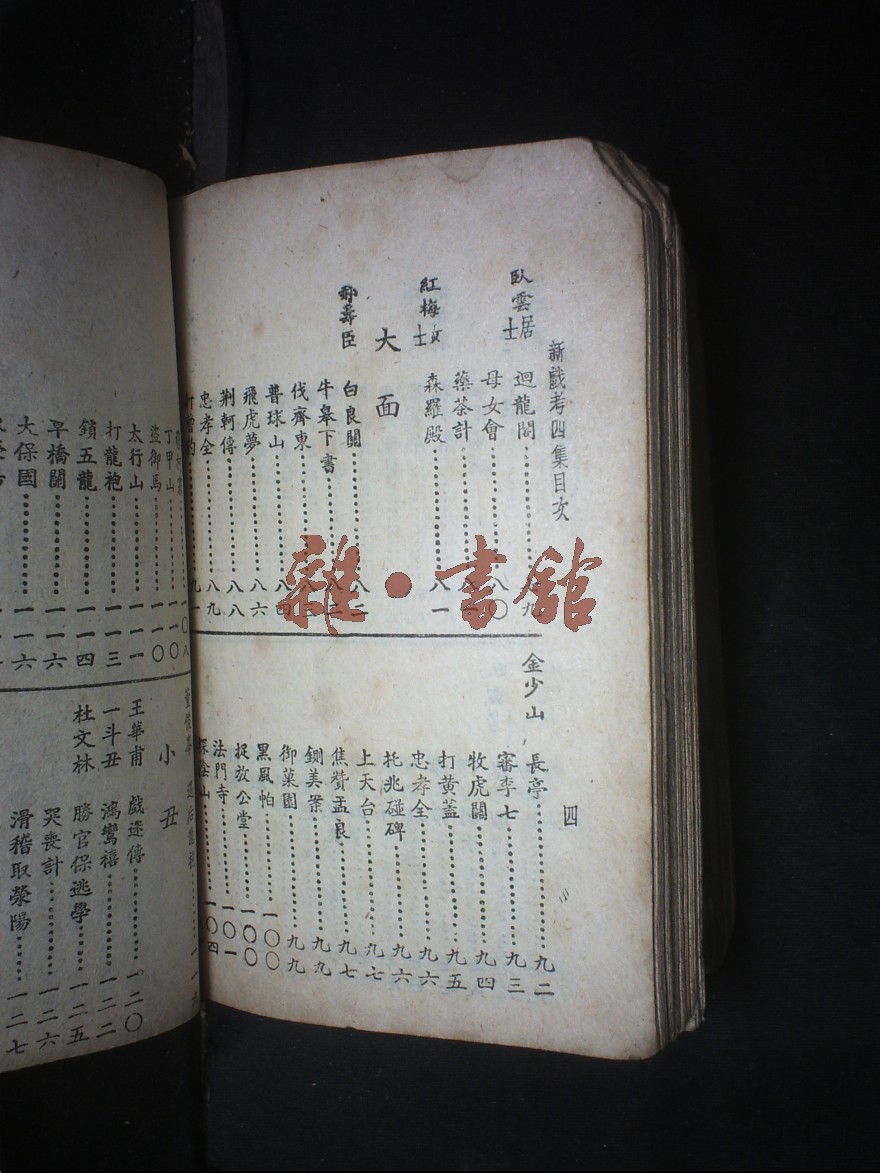 新戲考四集目次
四
臥雲居士
迴龍閣
母女會 八〇
藥茶計
紅梅女士
森羅殿 八一
大面
孫壽臣
白良關 八二
牛皋下書 八二
伐齊東
普球山 八四
飛虎夢 八六
荆軻傳 八八
忠孝全 八九
金少山
長亭 九二
審李七 九三
牧虎關 九四
打黃蓋 九五
忠孝全 九六
托兆碰碑 九六
上天台 九七
焦贊孟良 九七
鍘美案 九九
御菓園 九九
黑風帕 一〇〇
捉放公堂 一〇〇
法門寺 一〇一
探陰山 一〇四
丁甲山 一一〇
盜御馬 一一〇
太行山 一一一
打龍袍 一一三
鎖五龍 一一四
草橋關 一一六
大保國 一一六
小丑
王華甫
戲迷傳 一二〇
一斗丑
鴻鸞禧 一二二
杜文林
勝官保逃學 一二五
哭喪計 一二六
滑稽取滎陽 一二七
雜·書館